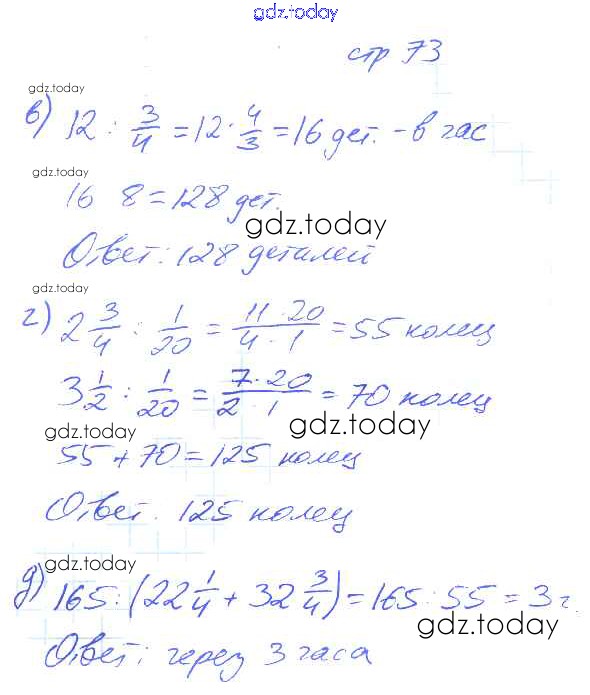 gdz.today
стр 73
gdz.today
в) 12 : 3/4 = 12 · 4/3 = 16 дет. - в час
gdz.today
16 8 = 128 дет.
gdz.today
Ответ: 128 деталей
gdz.today
г) 2 3/4 : 1/20 = 11·20/4·1 = 55 колец
3 1/2 : 1/20 = 7·20/2·1 = 70 колец
gdz.today
gdz.today
55 + 70 = 125 колец
Ответ. 125 колец
gdz.today
д) 165 : (22 1/4 + 32 3/4) = 165 : 55 = 3 ч.
gdz.today
Ответ: через 3 часа